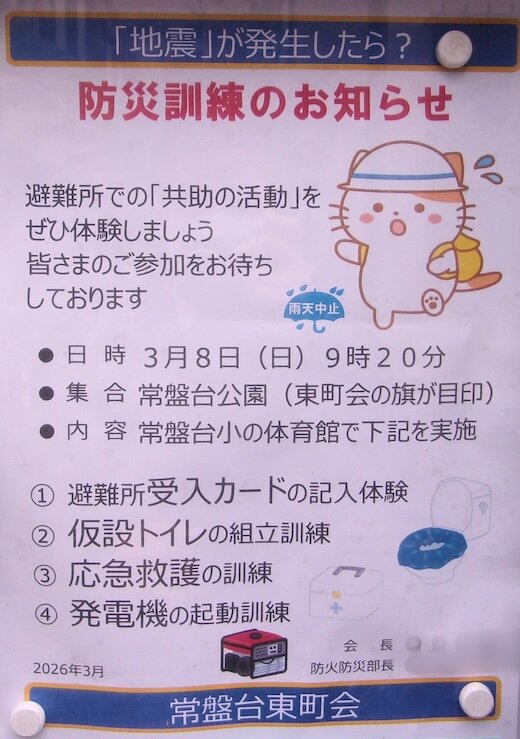 「地震」が発生したら？
防災訓練のお知らせ
避難所での「共助の活動」を
ぜひ体験しましょう
皆さまのご参加をお待ち
しております
雨天中止
● 日 時 3月8日（日）9時20分
● 集 合 常盤台公園（東町会の旗が目印）
● 内 容 常盤台小の体育館で下記を実施
① 避難所受入カードの記入体験
② 仮設トイレの組立訓練
③ 応急救護の訓練
④ 発電機の起動訓練
会 長
防火防災部長
2026年3月
常盤台東町会